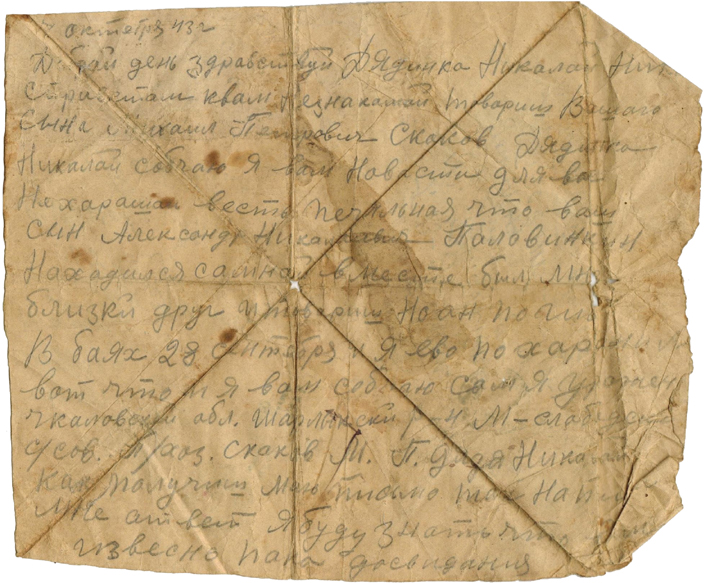 октебря 43г
Добрай день здравствуй Дядинка Никалай Ник
С приветам квам незнакамай товарищ Вашаго
Сына Михаил Петрович Скаков Дядинка
Никалай собчаю Я вам Новости для ва
Нехарашая весть печальная что ваш
Сын Александр Николаевич Паловинкин
Находился самной вместе был мне
близкй друг и товарищ Но он погиб
В баях 28 сентебря и Я ево похаранил
вот что и я вам собчаю сам Я урожен
Чкаловской обл. Шарлыкский р-н М-слабодский
с/сов. Скаков М. П. дядя Никалай
Как получиш мое письмо так напиши
мне ответ Я буду знать что
известно пака досвидания